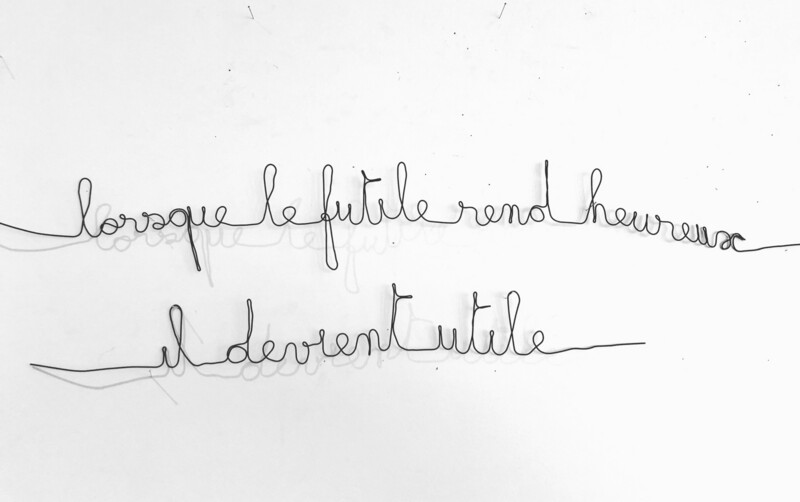 lorsque le futile rend heureux
il devient utile